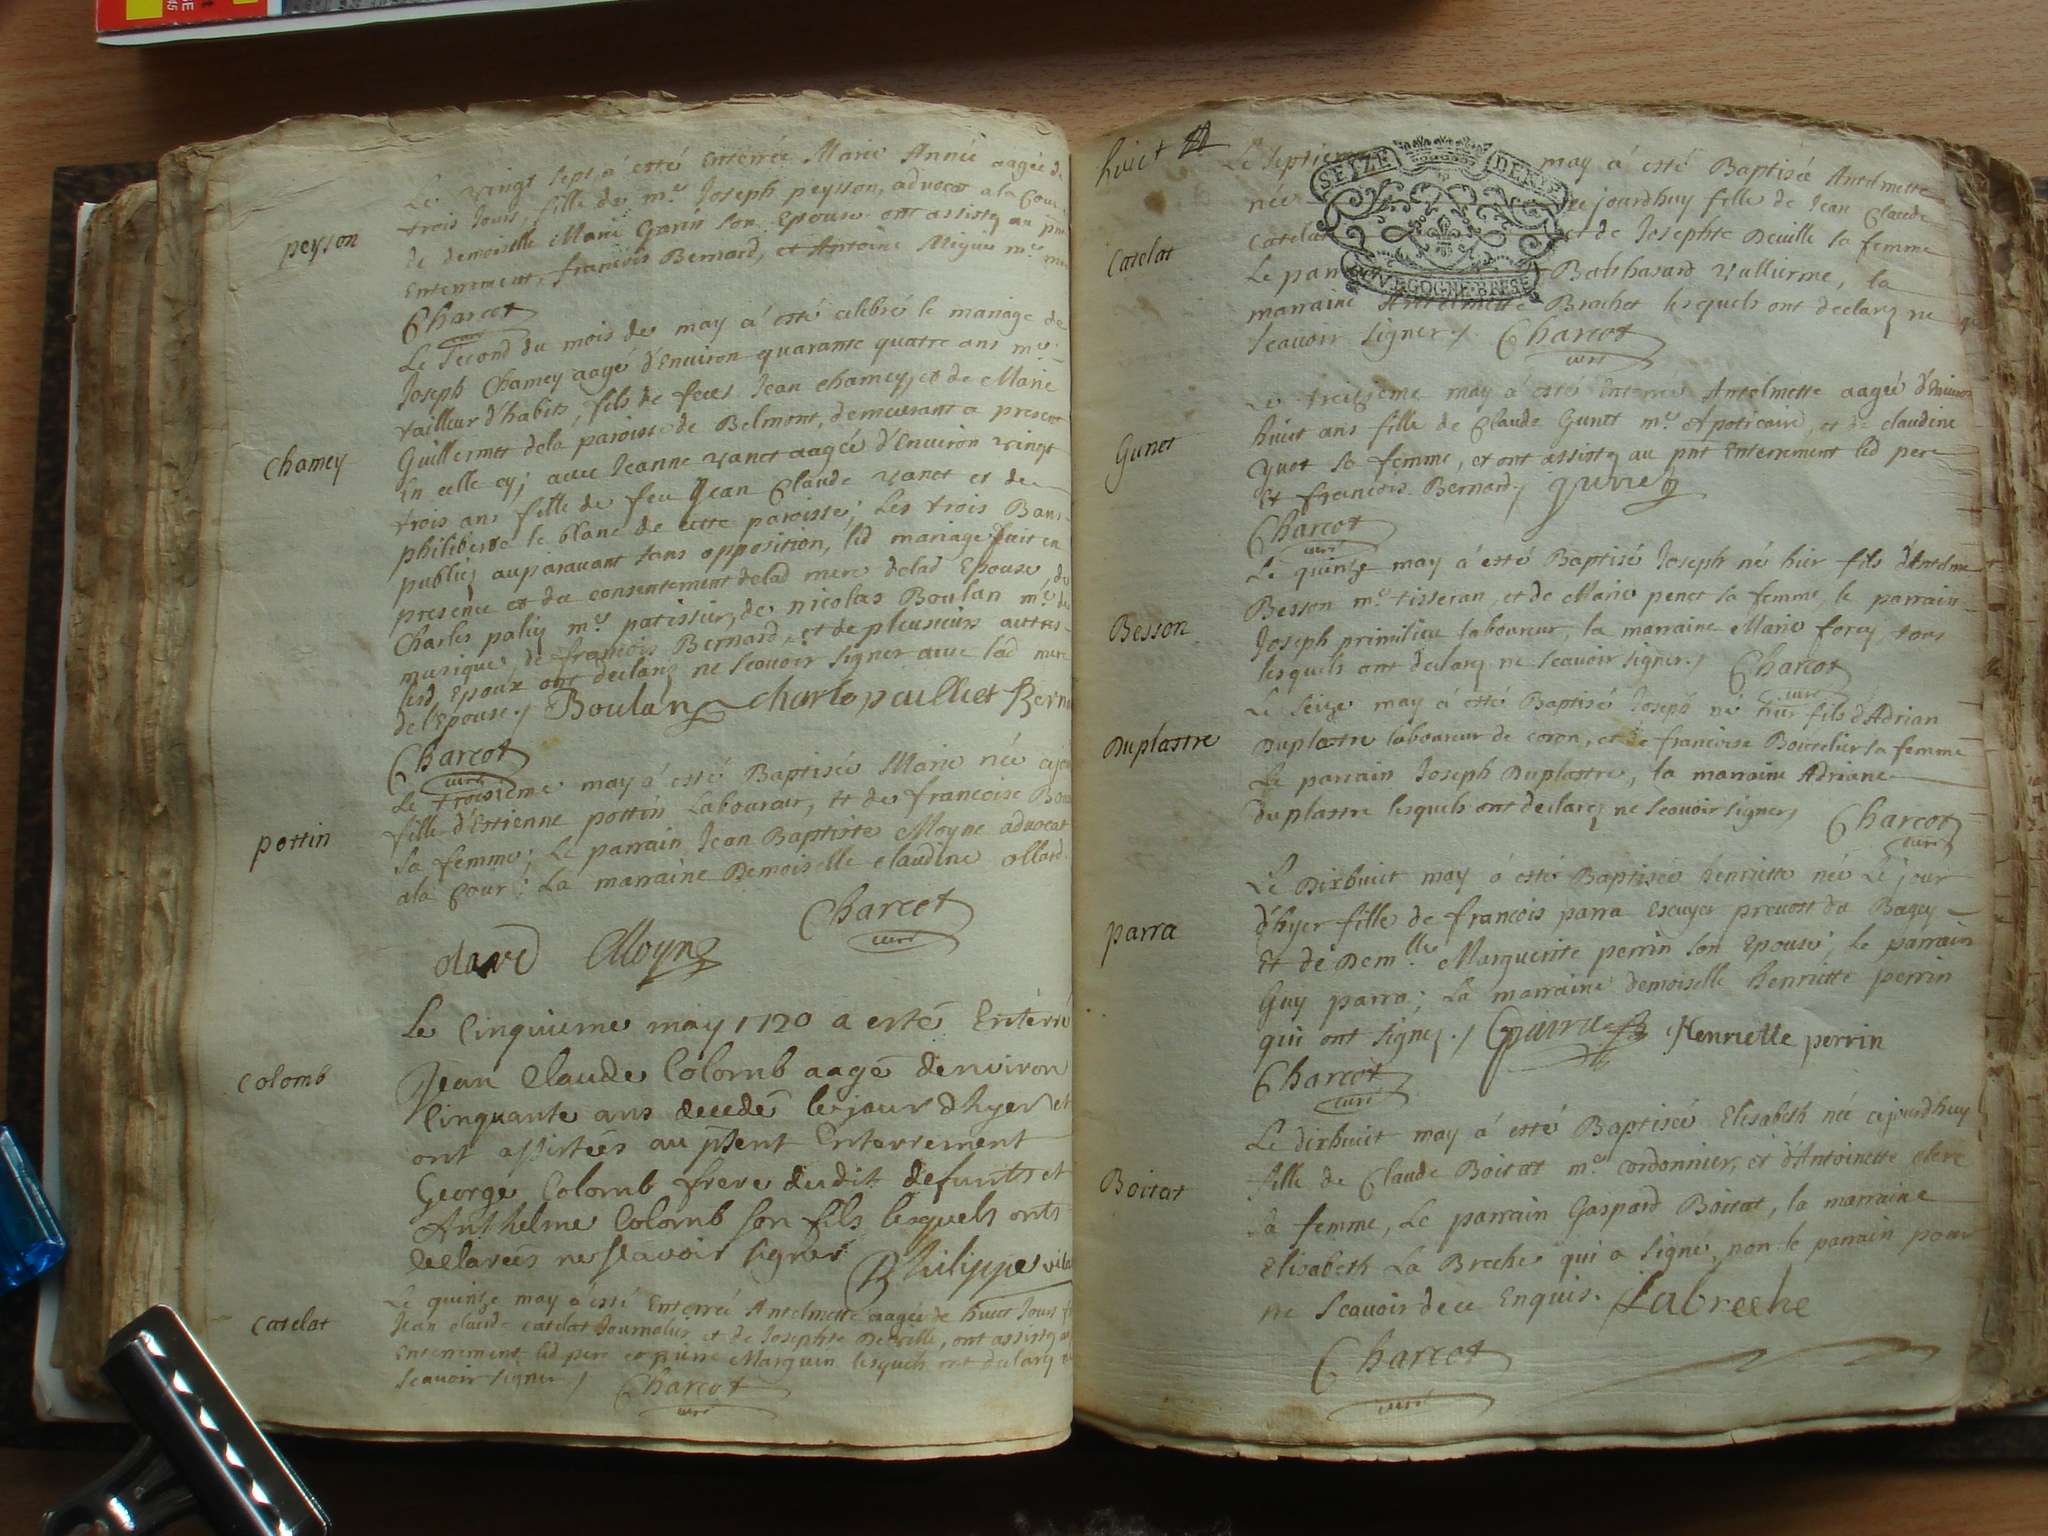 Le vingt sept a esté Enterrée Marie Année aagée de
trois Jours, fille de mᵉ Joseph peysson, advocat a la Cour
peysson
de demoiselle Marie Garin son Epouse ont assistez au pnt
Enterrement, francois Bernard, et Antoine Miguis mᵉ
Charcot
curé
Le Second du mois de may a esté celebré le mariage de
Joseph Chamey aagé d'Environ quarante quatre ans mᵉ
tailleur d'habits, fils de feus Jean chamey, et de Marie
Guillermet dela paroisse de Belmont, demeurant a present
Chamey
En celle cy; avec Jeanne vanet aagée d'Environ vingt
trois ans fille de feu Jean Claude vanet et de
philiberte le blanc de cette paroisse; Les trois Bans
publiez auparavant sans opposition, led mariage fait en
presence et du consentement delad mere delad Epouse, de
Charles palie mᵉ patissier, de nicolas Boulan mᵉ de
musique, de francois Bernard, et de pleusieurs autres
lesd Epoux ont declarez ne Scavoir signer avec lad mere
de l'Epouse. Boulan charle paulliet Berna
Charcot
curé
Le troisieme may a esté Baptisée Marie née
fille d'Estienne pottin Laboureur, et de francoise
pottin
sa femme; Le parrain Jean Baptiste Moyne advocat
ala Cour: La marraine Demoiselle claudine ollard
Charcot
curé
Moyne
Le Cinquieme may 1720 a esté Enterré
colomb
Jean Claude Colomb aagé denviron
Cinquante ans decedé le jour dhyer et
ont assistees au psent Enterrement
George Colomb frere dudit defunts et
Anthelme Colomb son fils lesquels onts
declarees ne scavoir signer Philippe
Le quinze may a esté Enterrée Antelmette aagée de huict Jours
catelat
Jean claude catelat Journalier et de Josephte Deville, ont assistez
Enterrement led pere et pierre Marguin lesquels ont declarez
Scavoir signer
Charcot
curé
huict
Le septieme may a esté Baptisée Antelmette
SEIZE DENIE
née jourdhuy fille de Jean Claude
catelat
Catelat et de Josephte Deville sa femme
Le parrain Balthasard vullierme, la
GOGNE·BRESE
marraine Antelmette Brachet lesquels ont declarez ne
Scavoir signer. Charcot
curé
Le treizieme may a esté Enterrée Antelmette aagée d'Environ
huict ans fille de Claude Gunet mᵉ Apoticaire, et de claudine
Gunet
yuot sa femme, et ont assistez au pnt Enterrement led pere
Et francois Bernard
Charcot
curé
Le quinze may a esté Baptisé Joseph né hier fils d'Antelme
Besson
Besson mᵉ tisseran, et de Marie penet sa femme, le parrain
Joseph primilieu laboureur, la marraine Marie forey, tous
lesquels ont declarez ne scavoir signer. Charcot
curé
Le Seize may a esté Baptisé Joseph né hier fils d'Adrian
Duplastre
Duplastre laboureur de coron, et de francoise Bourelier sa femme
Le parrain Joseph Duplastre, la marraine Adriane
duplastre lesquels ont declarez ne scavoir signer
Charcot
curé
Le Dixhuict may a esté Baptisée henriette née Le jour
d'hyer fille de francois parra Escuyer prevost du Bugey
parra
Et de Demˡˡᵉ Marguerite perrin son Epouse; Le parrain
Guy parra; La marraine demoiselle henriette perrin
qui ont signez. Henriette perrin
Charcot
curé
Le dixhuict may a esté Baptisée Elisabeth née cejourdhuy
Boitat
fille de Claude Boitat mᵉ cordonnier, et d'Antoinette clerc
sa femme, Le parrain Gaspard Boitat, la marraine
Elisabeth La Breche qui a signé, non le parrain pour
ne Scavoir de ce Enquis. Labreche
Charcot
curé